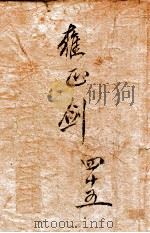 雍正劍
四十五
mtoou.info